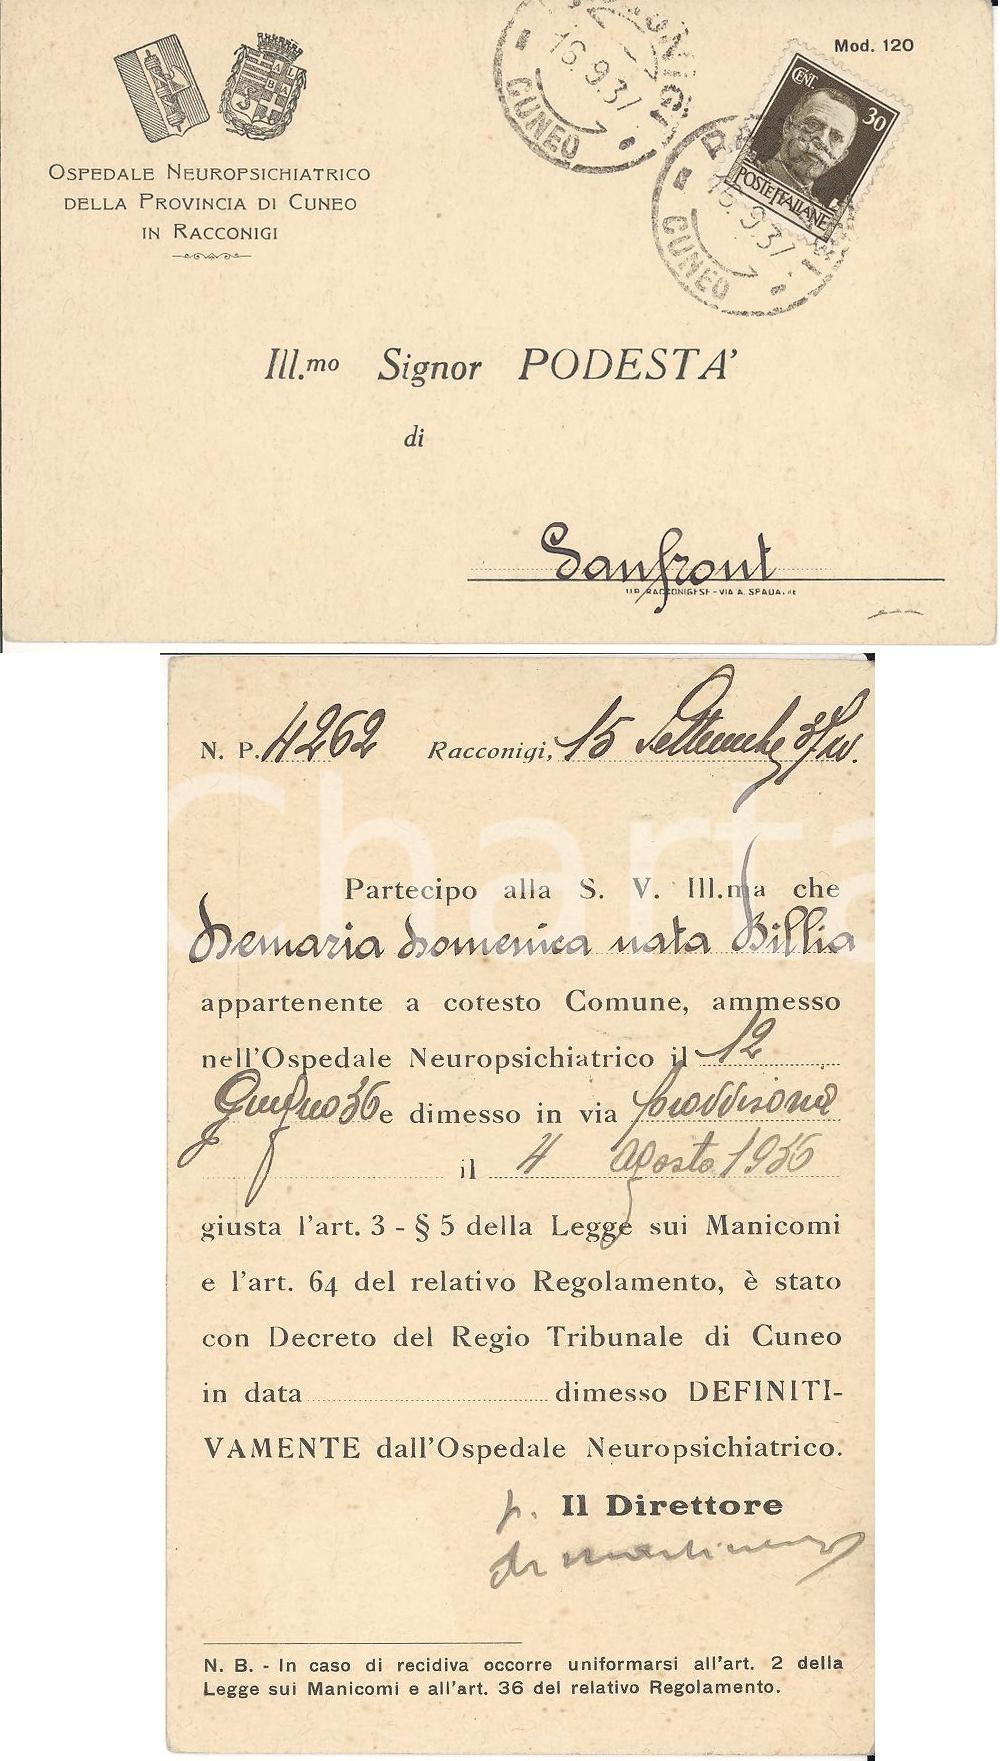 Mod. 120
OSPEDALE NEUROPSICHIATRICO
DELLA PROVINCIA DI CUNEO
IN RACCONIGI
16.9.37
CUNEO
CENT. 30
POSTE ITALIANE
16.9.37
CUNEO
Ill.mo Signor PODESTA'
di
Sanfront
TIP. RACCONIGESE - VIA A. SPADA,
N. P. 4262 Racconigi, 15 Settembre 37
Partecipo alla S. V. Ill.ma che
Demaria Domenica nata Billia
appartenente a cotesto Comune, ammesso
nell'Ospedale Neuropsichiatrico il 12
Giugno 36 e dimesso in via provvisoria
il 4 Agosto 1936
giusta l'art. 3 - § 5 della Legge sui Manicomi
e l'art. 64 del relativo Regolamento, è stato
con Decreto del Regio Tribunale di Cuneo
in data dimesso DEFINITI-
VAMENTE dall'Ospedale Neuropsichiatrico.
p. Il Direttore
N. B. - In caso di recidiva occorre uniformarsi all'art. 2 della
Legge sui Manicomi e all'art. 36 del relativo Regolamento.
Charta